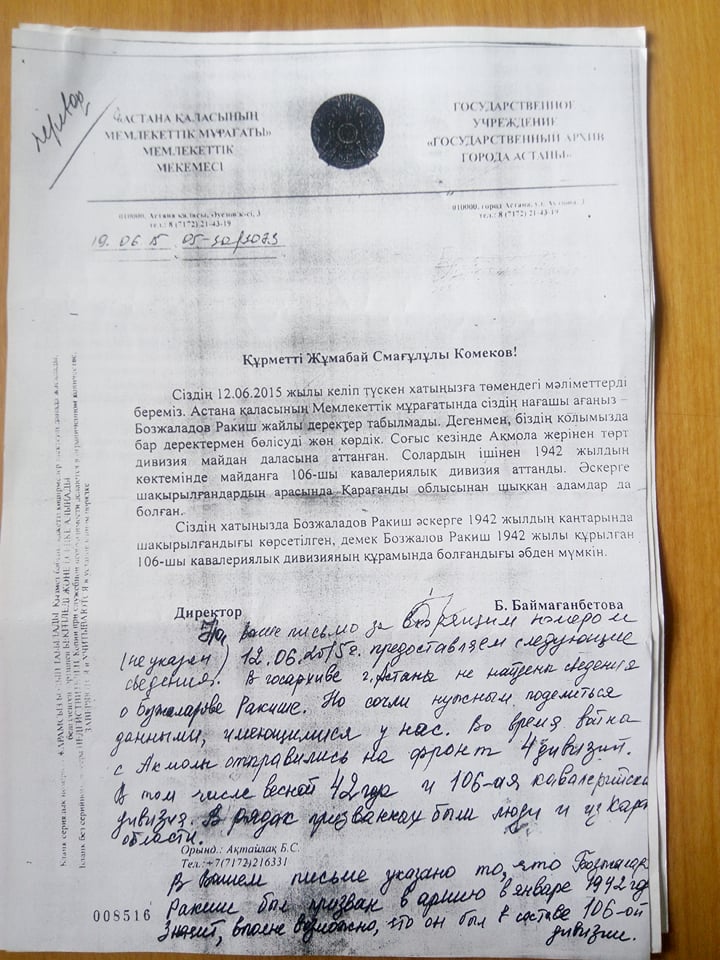 перевод
«АСТАНА ҚАЛАСЫНЫҢ
МЕМЛЕКЕТТІК МҰРАҒАТЫ»
МЕМЛЕКЕТТІК
МЕКЕМЕСІ
ГОСУДАРСТВЕННОЕ
УЧРЕЖДЕНИЕ
«ГОСУДАРСТВЕННЫЙ АРХИВ
ГОРОДА АСТАНЫ»
010000, Астана қаласы, Әуезов к-сі, 3
тел.: 8 (7172) 21-43-19
010000, город Астана, ул. Ауэзова, 3
тел.: 8 (7172) 21-43-19
19.06.15 05-30/1073
Құрметті Жұмабай Смағұлұлы Комеков!
Сіздің 12.06.2015 жылы келіп түскен хатыңызға төмендегі мәліметтерді
береміз. Астана қаласының Мемлекеттік мұрағатында сіздің нағашы ағаңыз –
Бозжаладов Ракиш жайлы деректер табылмады. Дегенмен, біздің қолымызда
бар деректермен бөлісуді жөн көрдік. Соғыс кезінде Ақмола жерінен төрт
дивизия майдан даласына аттанған. Солардың ішінен 1942 жылдың
көктемінде майданға 106-шы кавалериялық дивизия аттанды. Әскерге
шақырылғандардың арасында Қарағанды облысынан шыққан адамдар да
болған.
Сіздің хатыңызда Бозжаладов Ракиш әскерге 1942 жылдың қантарында
шақырылғандығы көрсетілген, демек Бозжалов Ракиш 1942 жылы құрылған
106-шы кавалериялық дивизияның құрамында болғандығы әбден мүмкін.
Директор
Б. Баймағанбетова
На Ваше письмо за входящим номером
(не указан) 12.06.2015г. предоставляем следующие
сведения. В госархиве г.Астаны не найдены сведения
о Ракише. Но сочли нужным поделиться
данными, имеющимися у нас. Во время война
с Акмолы отправились на фронт 4 дивизий.
В том числе весной 42 года и 106-ая кавалерийска
дивизия. В рядах призванных были люди и из Кара
области.
Орынд.: Ақтайлақ Б.С.
Тел.:+7(7172)216331
В Вашем письме указано то, что
Ракиш был призван в армию в январе 1942 год
Значит, вполне возможно, что он был в составе 106-ой
дивизии.
008516